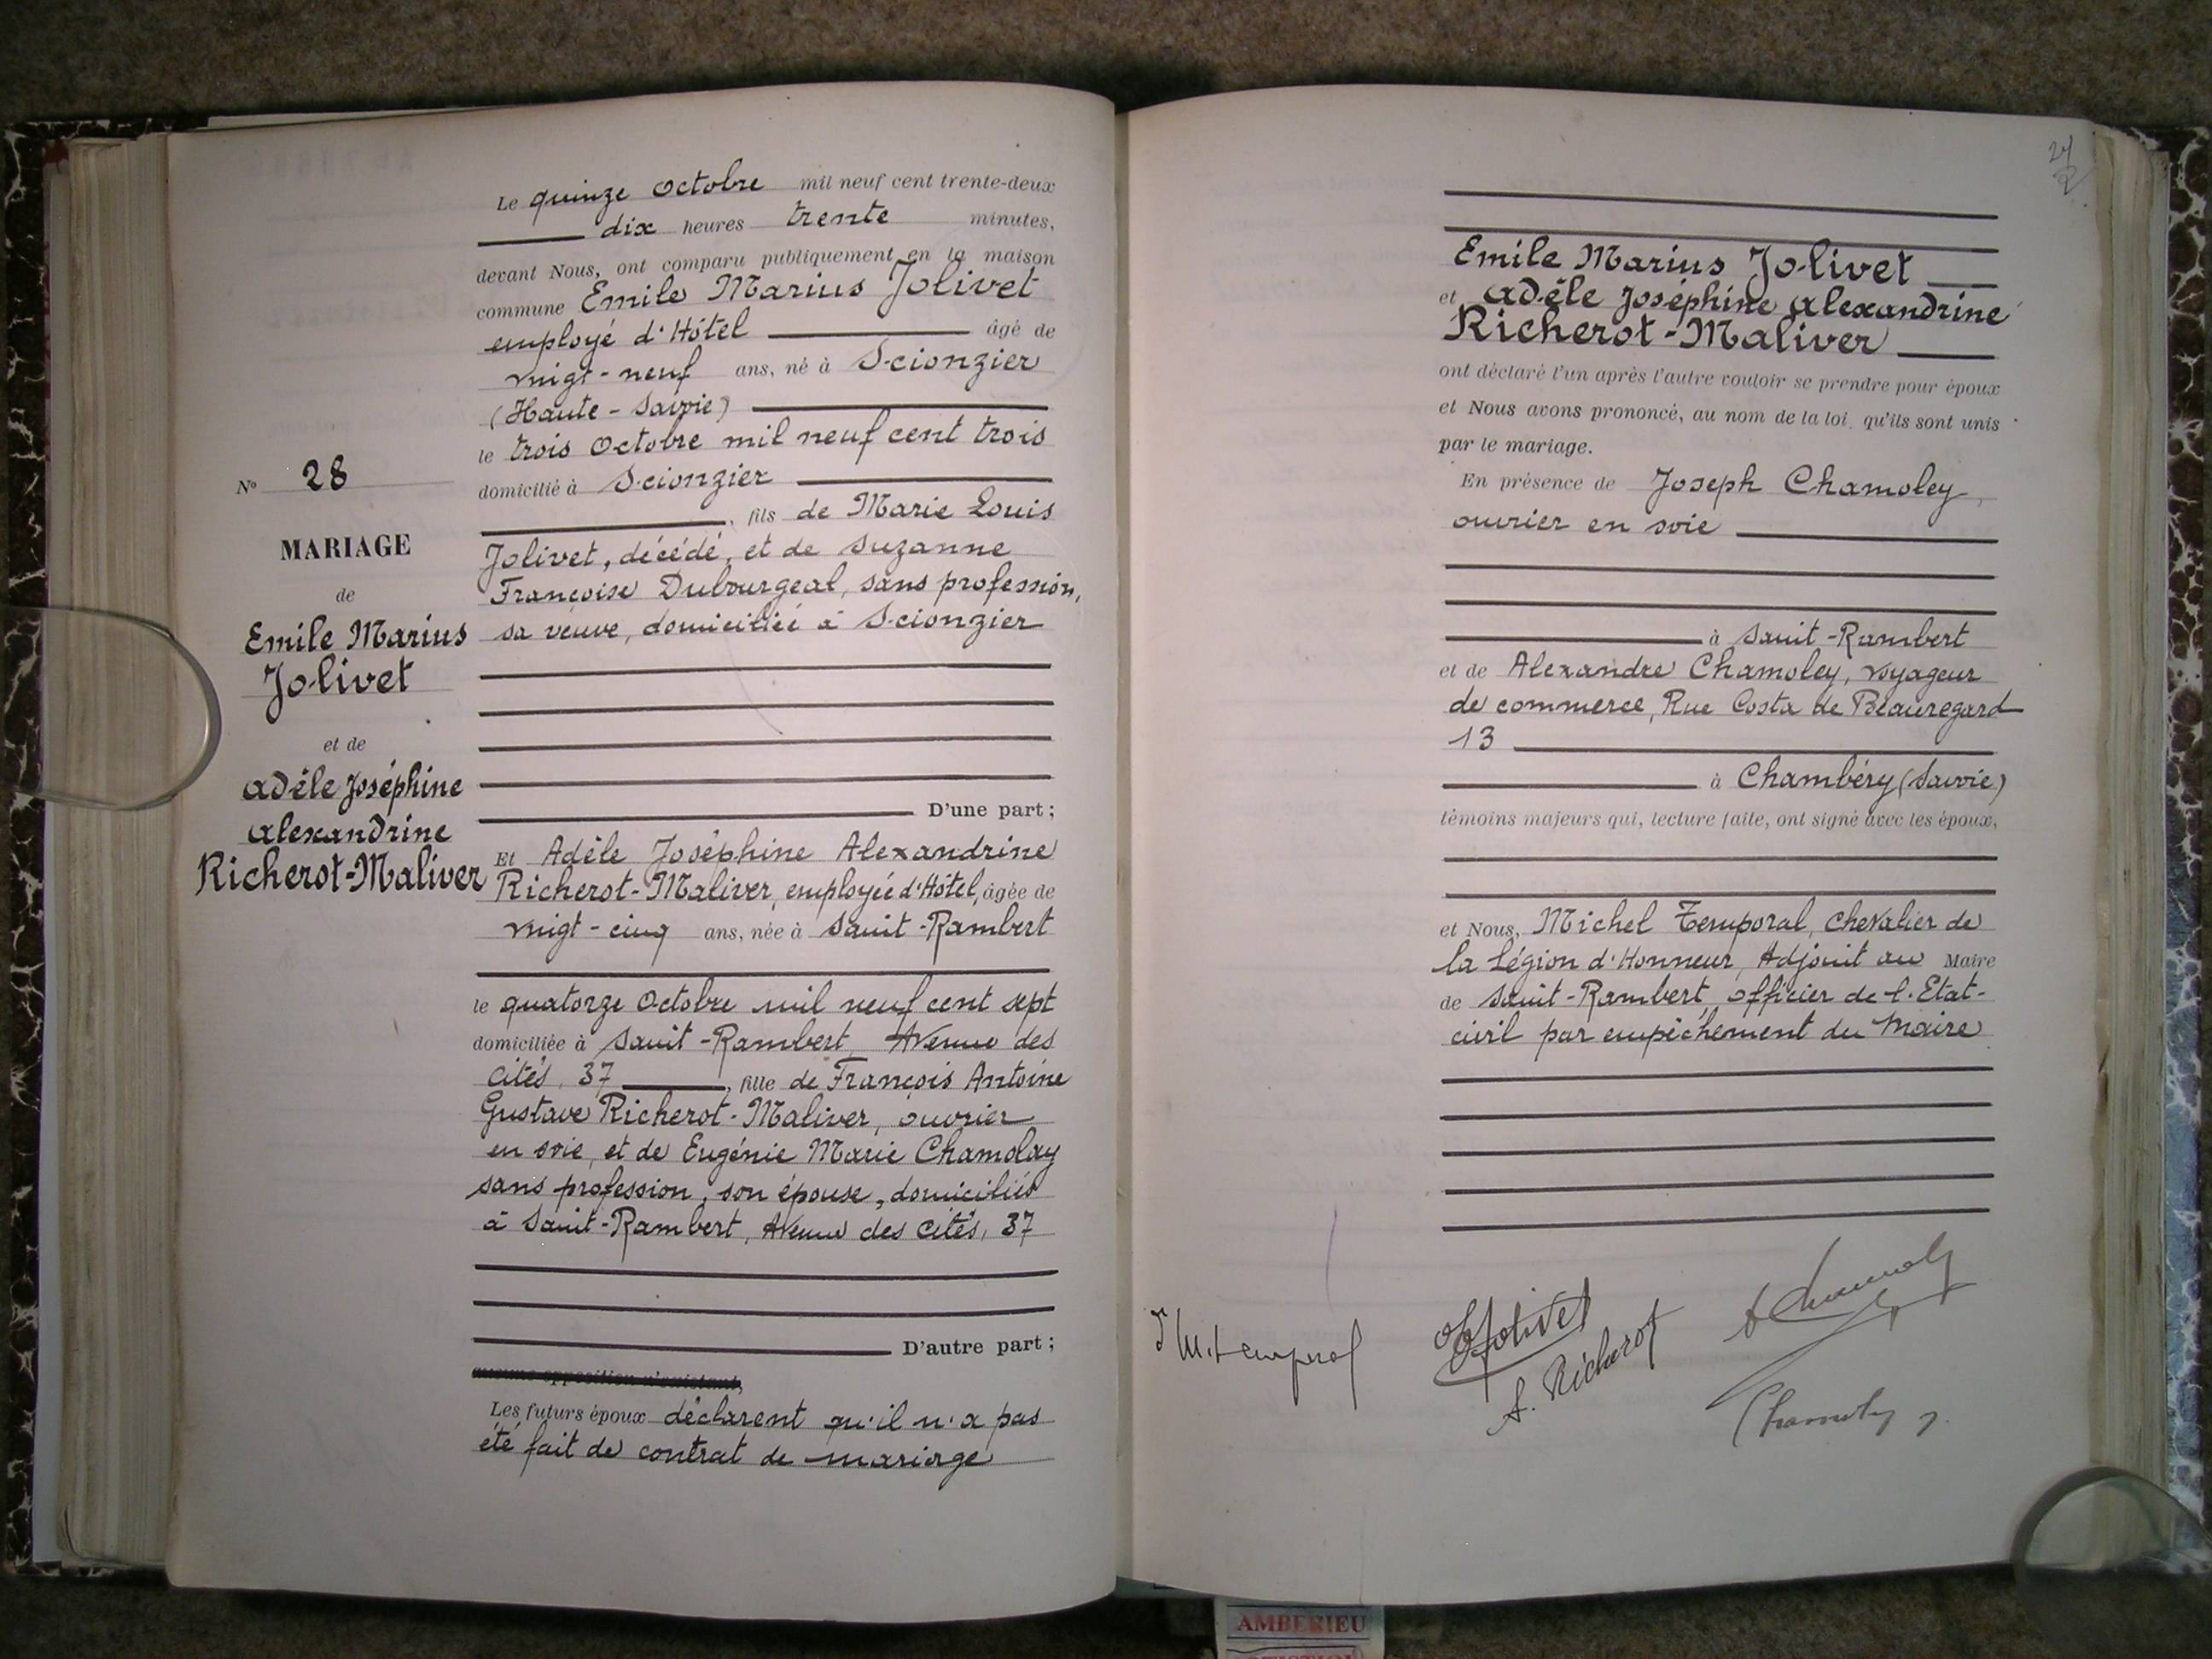 Le quinze Octobre mil neuf cent trente-deux
dix heures trente minutes,
devant Nous, ont comparu publiquement en la maison
commune Emile Marius Jolivet
employé d'Hôtel âgé de
vingt-neuf ans, né à Scionzier
(Haute-Savoie)
le trois Octobre mil neuf cent trois
domicilié à Scionzier
, fils de Marie Louis
Jolivet, décédé, et de Suzanne
Françoise Dubourgeal, sans profession,
sa veuve, domiciliée à Scionzier
D'une part;
Et Adèle Joséphine Alexandrine
Richerot-Maliver, employée d'Hôtel, âgée de
vingt-cinq ans, née à Saint-Rambert
le quatorze Octobre mil neuf cent sept
domiciliée à Saint-Rambert, Avenue des
Cités, 37, fille de François Antoine
Gustave Richerot-Maliver, ouvrier
en soie, et de Eugénie Marie Chamolay
sans profession, son épouse, domiciliés
à Saint-Rambert, Avenue des Cités, 37
D'autre part;
aucune opposition n'existant,
Les futurs époux déclarent qu'il n'a pas
été fait de contrat de mariage
No 28
MARIAGE
de
Emile Marius
Jolivet
et de
Adèle Joséphine
Alexandrine
Richerot-Maliver
Emile Marius Jolivet
et Adèle Joséphine Alexandrine
Richerot-Maliver
ont déclaré l'un après l'autre vouloir se prendre pour époux
et Nous avons prononcé, au nom de la loi, qu'ils sont unis
par le mariage.
En présence de Joseph Chamoley,
ouvrier en soie
à Saint-Rambert
et de Alexandre Chamoley, voyageur
de commerce, Rue Costa de Beauregard
13
à Chambéry (Savoie)
témoins majeurs qui, lecture faite, ont signé avec les époux,
et Nous, Michel Temporal, Chevalier de
la Légion d'Honneur, Adjoint au Maire
de Saint-Rambert, officier de l'Etat-
civil par empêchement du Maire
M. Temporal
Jolivet
A. Richerot
Chamoley J.
AMBERIEU